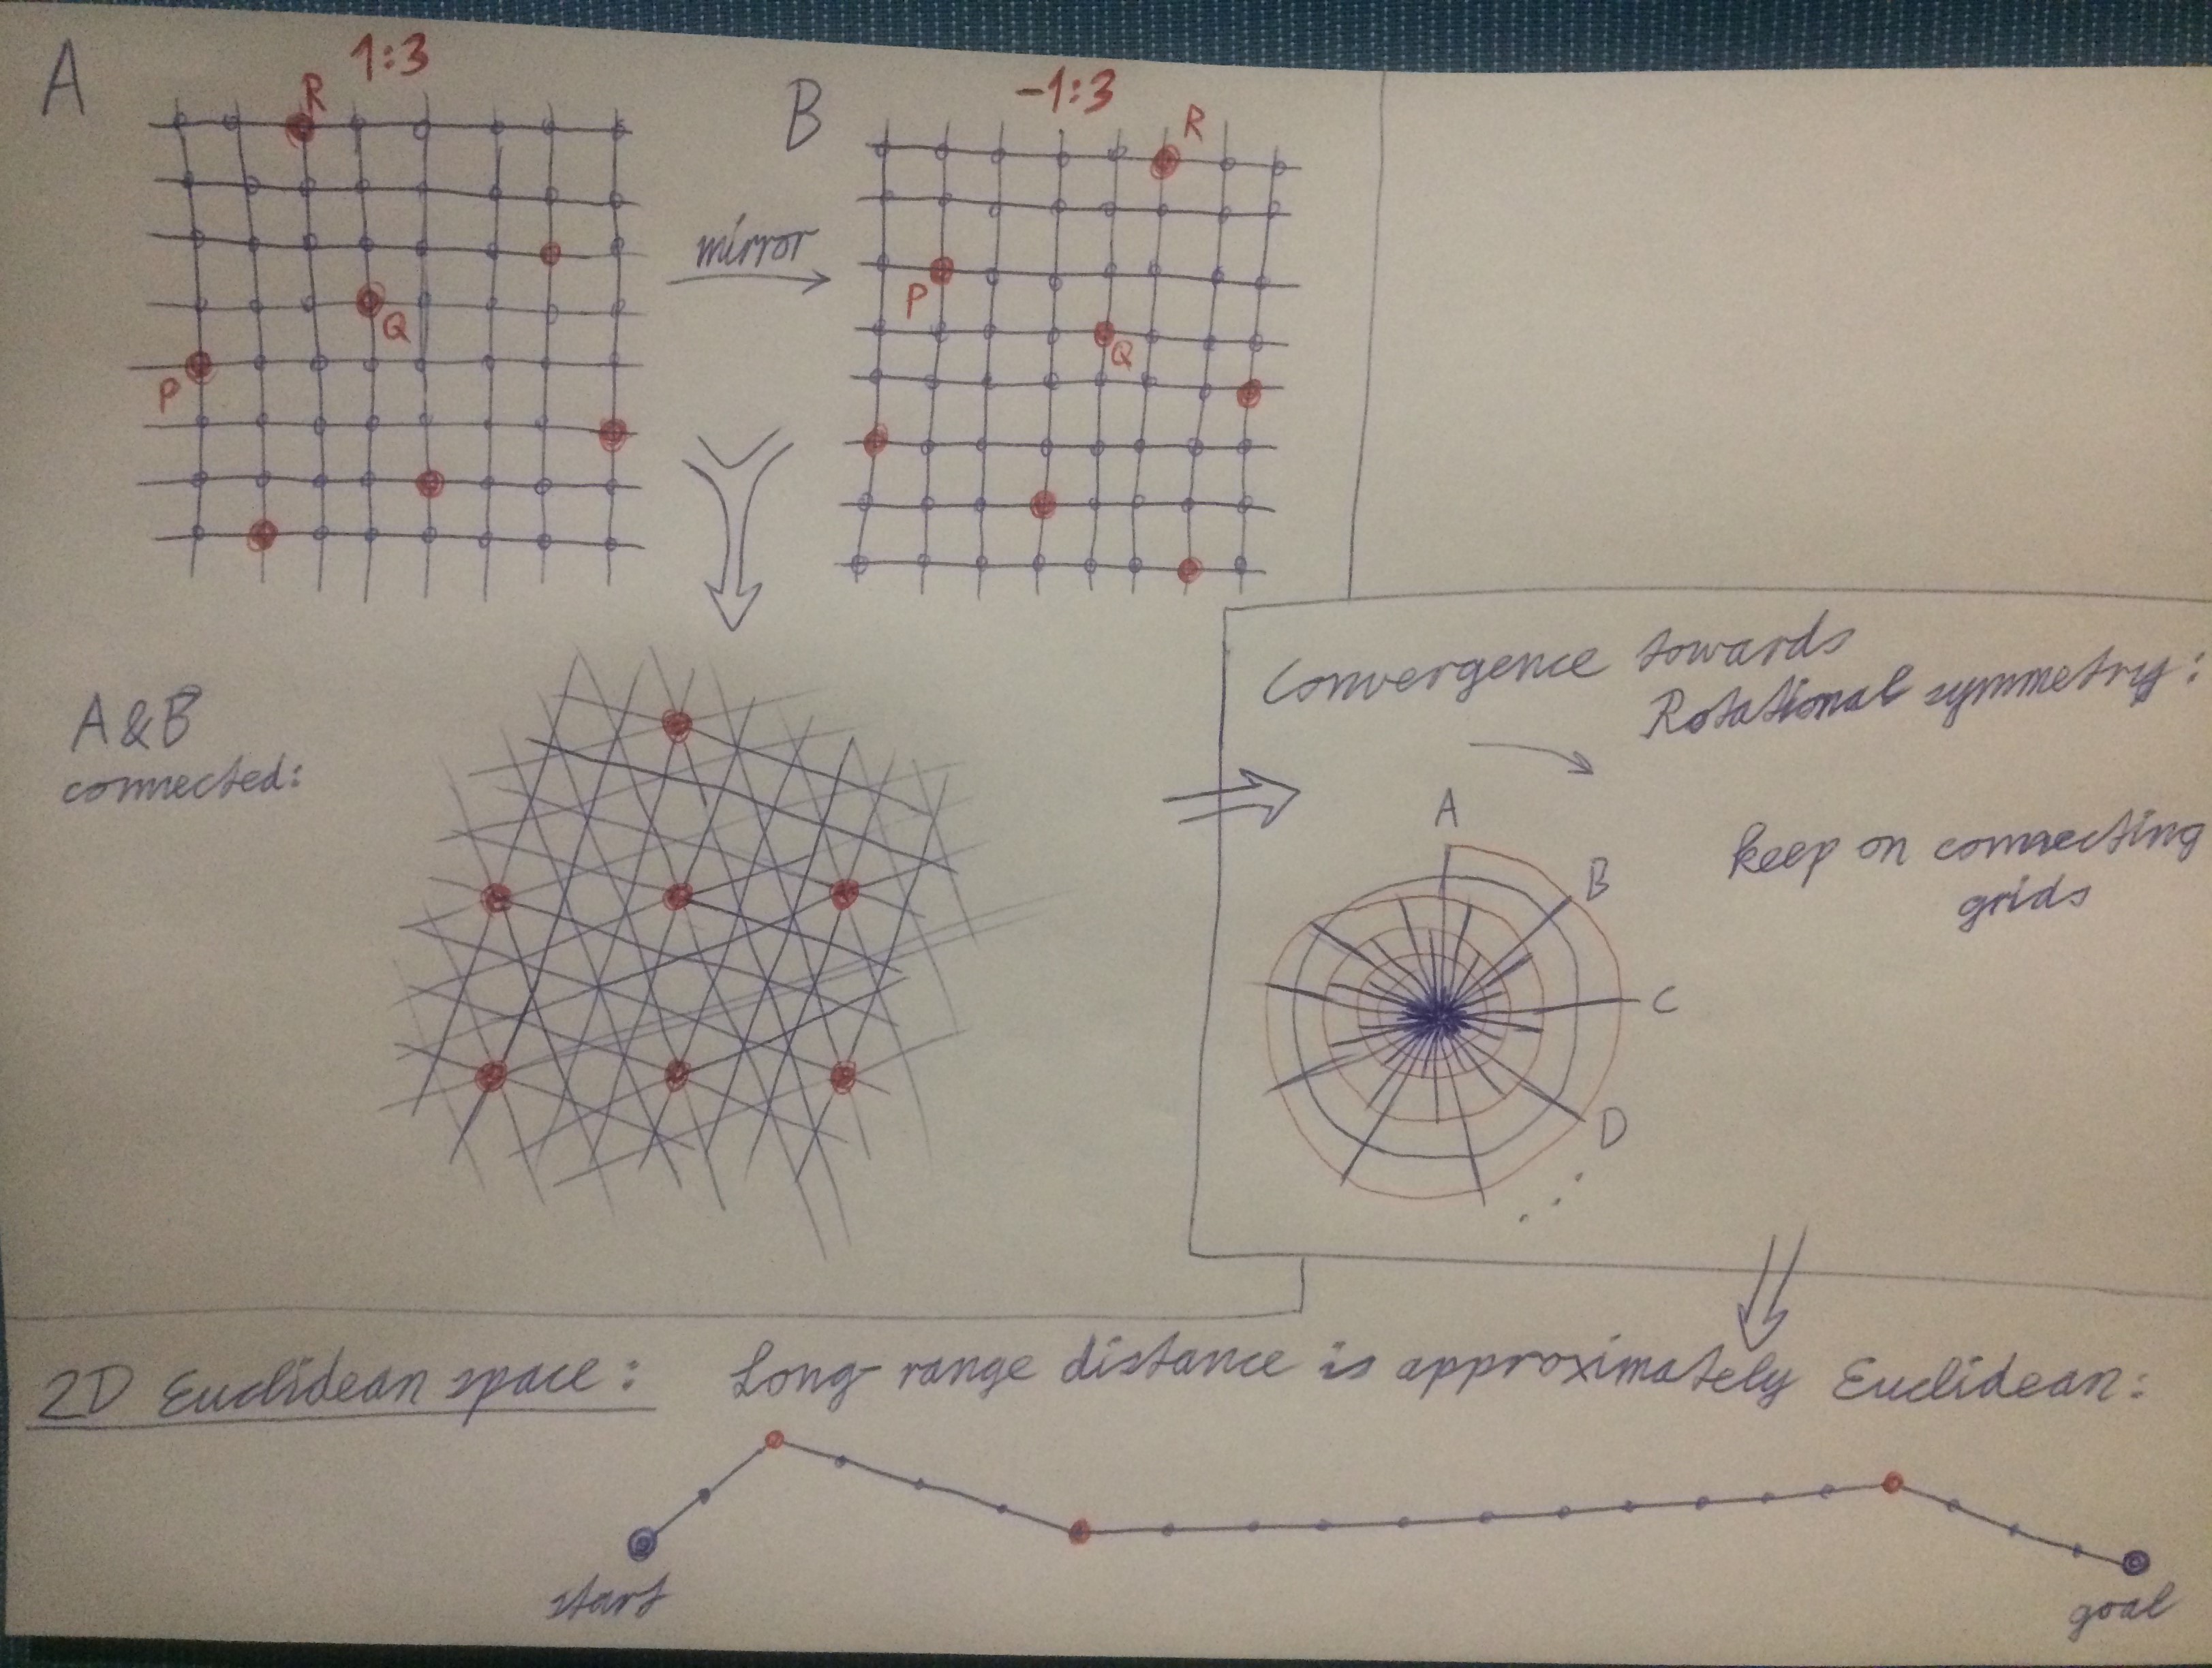 A
1:3
R
Q
P
mirror
B
-1:3
R
P
Q
A&B
connected:
Convergence towards
Rotational symmetry:
A
B
C
D
keep on connecting
grids
2D Euclidean space: Long-range distance is approximately Euclidean:
start
goal